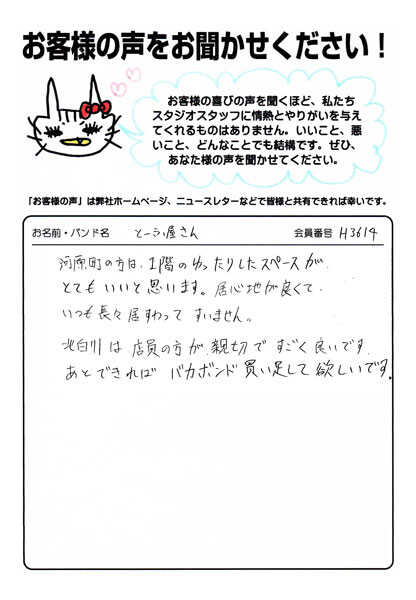 お客様の声をお聞かせください！
お客様の喜びの声を聞くほど、私たち
スタジオスタッフに情熱とやりがいを与え
てくれるものはありません。いいこと、悪
いこと、どんなことでも結構です。ぜひ、
あなた様の声を聞かせてください。
「お客様の声」は弊社ホームページ、ニュースレターなどで皆様と共有できれば幸いです。
お名前・バンド名 とーふ屋さん 会員番号 H3614
河原町の方は、1階のゆったりしたスペースが
とてもいいと思います。居心地が良くて
いつも長々居すわって すいません。
北白川は 店員の方が 親切で すごく 良いです。
あと できれば バカボンド 買い足して 欲しいです。